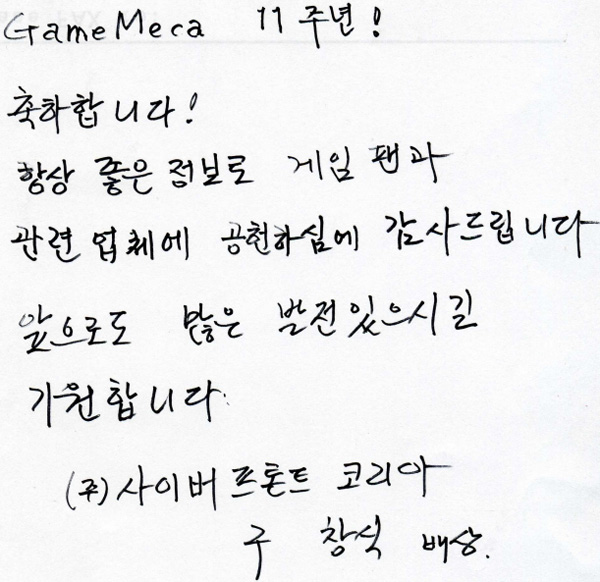 GameMeca 11주년!
축하합니다!
항상 좋은 정보로 게임 팬과
관련 업체에 공헌하심에 감사드립니다
앞으로도 많은 발전있으시길
기원합니다.
(주)사이버프론트 코리아
구 창식 배상.